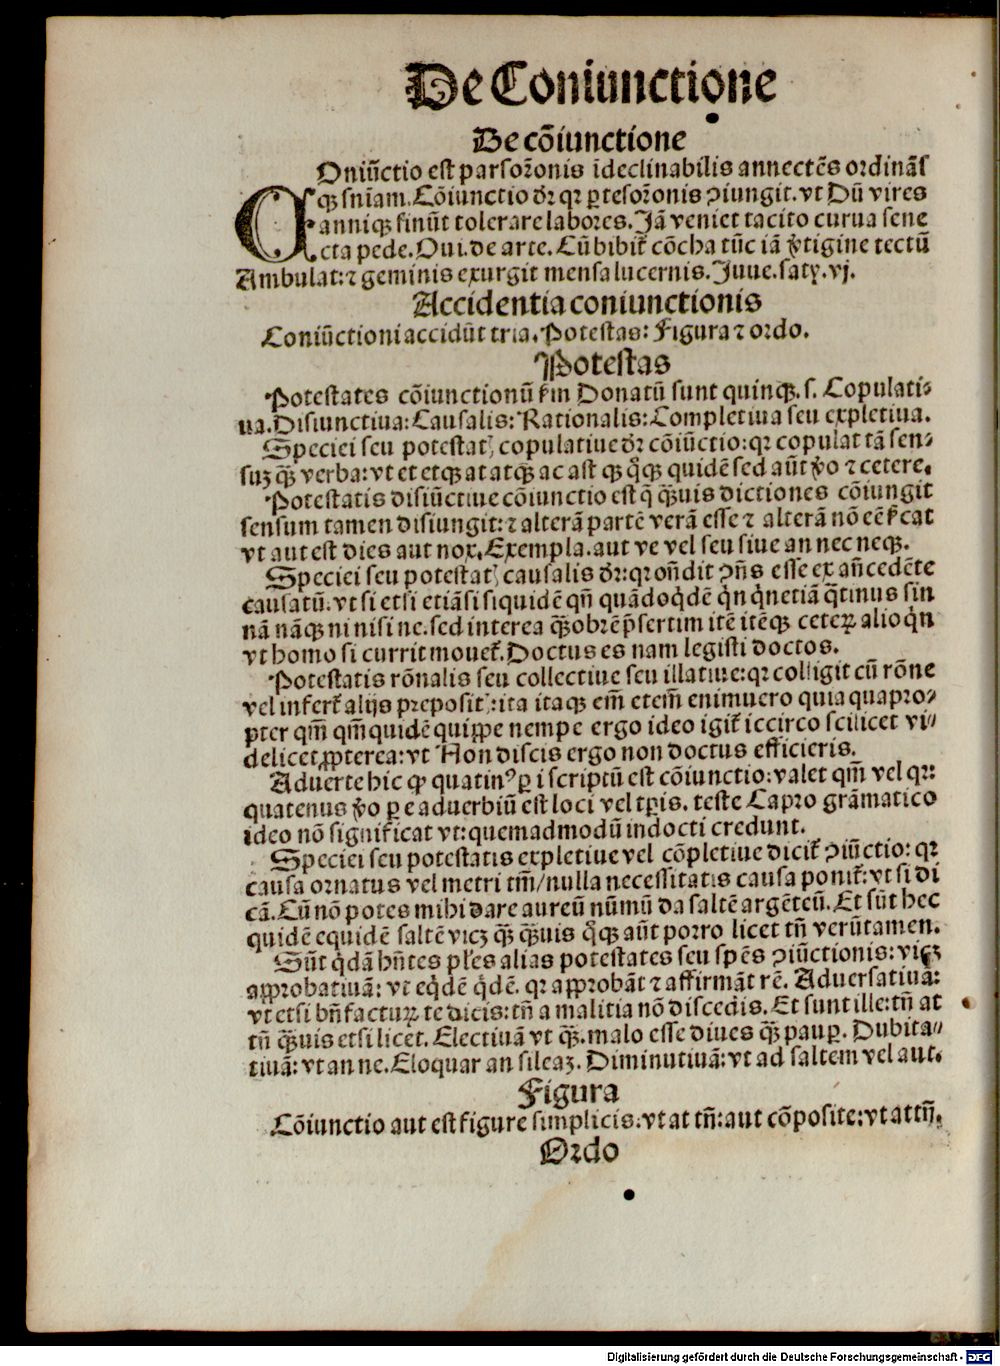 De Coniunctione
De cōiunctione
COniūctio est pars orōnis īdeclinabilis annectēs ordinās
qꝫ snīam. Cōiunctio dr̄ qꝛ ꝑtes orōnis ↄiungit. vt Dū vires
anniqꝫ sinūt tolerare labores. Jā veniet tacito curua sene
cta pede. Oui. de arte. Cū bibit̄ cōcha tūc iā v̓tigine tectū
Ambulat: ⁊ geminis exurgit mensa lucernis. Juue. saty. vj.
Accidentia coniunctionis
Coniūctioni accidūt tria. Potestas: Figura ⁊ ordo.
Potestas
Potestates cōiunctionū s̄m Donatū sunt quinqꝫ. s. Copulati⸗
ua. Disiunctiua: Causalis: Rationalis: Completiua seu expletiua.
Speciei seu potestatꝭ copulatiue dr̄ cōiūctio: qꝛ copulat tā sen⸗
suꝫ qꝫ̄ verba: vt et etqꝫ at atqꝫ ac ast qꝫ qͥqꝫ quidē sed aūt v̓o ⁊ cetere.
Potestatis disiūctiue cōiunctio est q̄ qꝫ̄uis dictiones cōiungit
sensum tamen disiungit: ⁊ alterā partē verā esse ⁊ alterā nō eē s̓cat
vt aut est dies aut nox. Exempla. aut ve vel seu siue an nec neqꝫ.
Speciei seu potestatꝭ causalis dr̄: qꝛ oñdit ↄñs esse ex añcedēte
causatū. vt si etsi etiāsi siquidē qñ quādoqͥdē qͥn qͥnetiā q̄tinus sin
nā nāqꝫ ni nisi ne. sed interea qꝫ̄obrē p̄sertim itē itēqꝫ ceteꝝ alioqͥn
vt homo si currit mouet̄. Doctus es nam legisti doctos.
Potestatis rōnalis seu collectiue seu illatiue: qꝛ colligit cū rōne
vel infert̄ alijs prepositꝭ: ita itaqꝫ em̄ etem̄ enimuero quia quapro⸗
pter qm̄ qm̄quidē quippe nempe ergo ideo igit̄ iccirco scilicet vi⸗
delicet ꝓpterea: vt Non discis ergo non doctus efficieris.
Aduerte hic ꝙ quatinꝰ ꝑ i scriptū est cōiunctio: valet qm̄ vel qꝛ:
quatenus v̓o ꝑ e aduerbiū est loci vel tꝑis. teste Capro grāmatico
ideo nō significat vt: quemadmodū indocti credunt.
Speciei seu potestatis expletiue vel cōpletiue dicit̄ ↄiūctio: qꝛ
causa ornatus vel metri tm̄/nulla necessitatis causa ponit̄: vt si di
cā. Cū nō potes mihi dare aureū nūmū da saltē argēteū. Et sūt hec
quidē equidē saltē vicꝫ qꝫ̄ qꝫ̄uis qͥqꝫ aūt porro licet tñ verūtamen.
Sūt qͥdā hñtes pl̓es alias potestates seu spēs ↄiūctionis: vicꝫ
approbatiuā: vt eqͥdē qͥdē. qꝛ approbāt ⁊ affirmāt rē. Aduersatiuā:
vt etsi bñ facturꝝ te dicis: tñ a malitia nō discedis. Et sunt ille: tñ at
tñ qꝫ̄uis etsi licet. Electiuā vt qꝫ̄. malo esse diues qꝫ̄ pauꝑ. Dubita⸗
tiuā: vt an ne. Eloquar an sileaꝫ. Diminutiuā: vt ad saltem vel aut.
Figura
Cōiunctio aut est figure simplicis: vt at tñ: aut cōposite: vt attñ.
Ordo
Digitalisierung gefördert durch die Deutsche Forschungsgemeinschaft - DFG